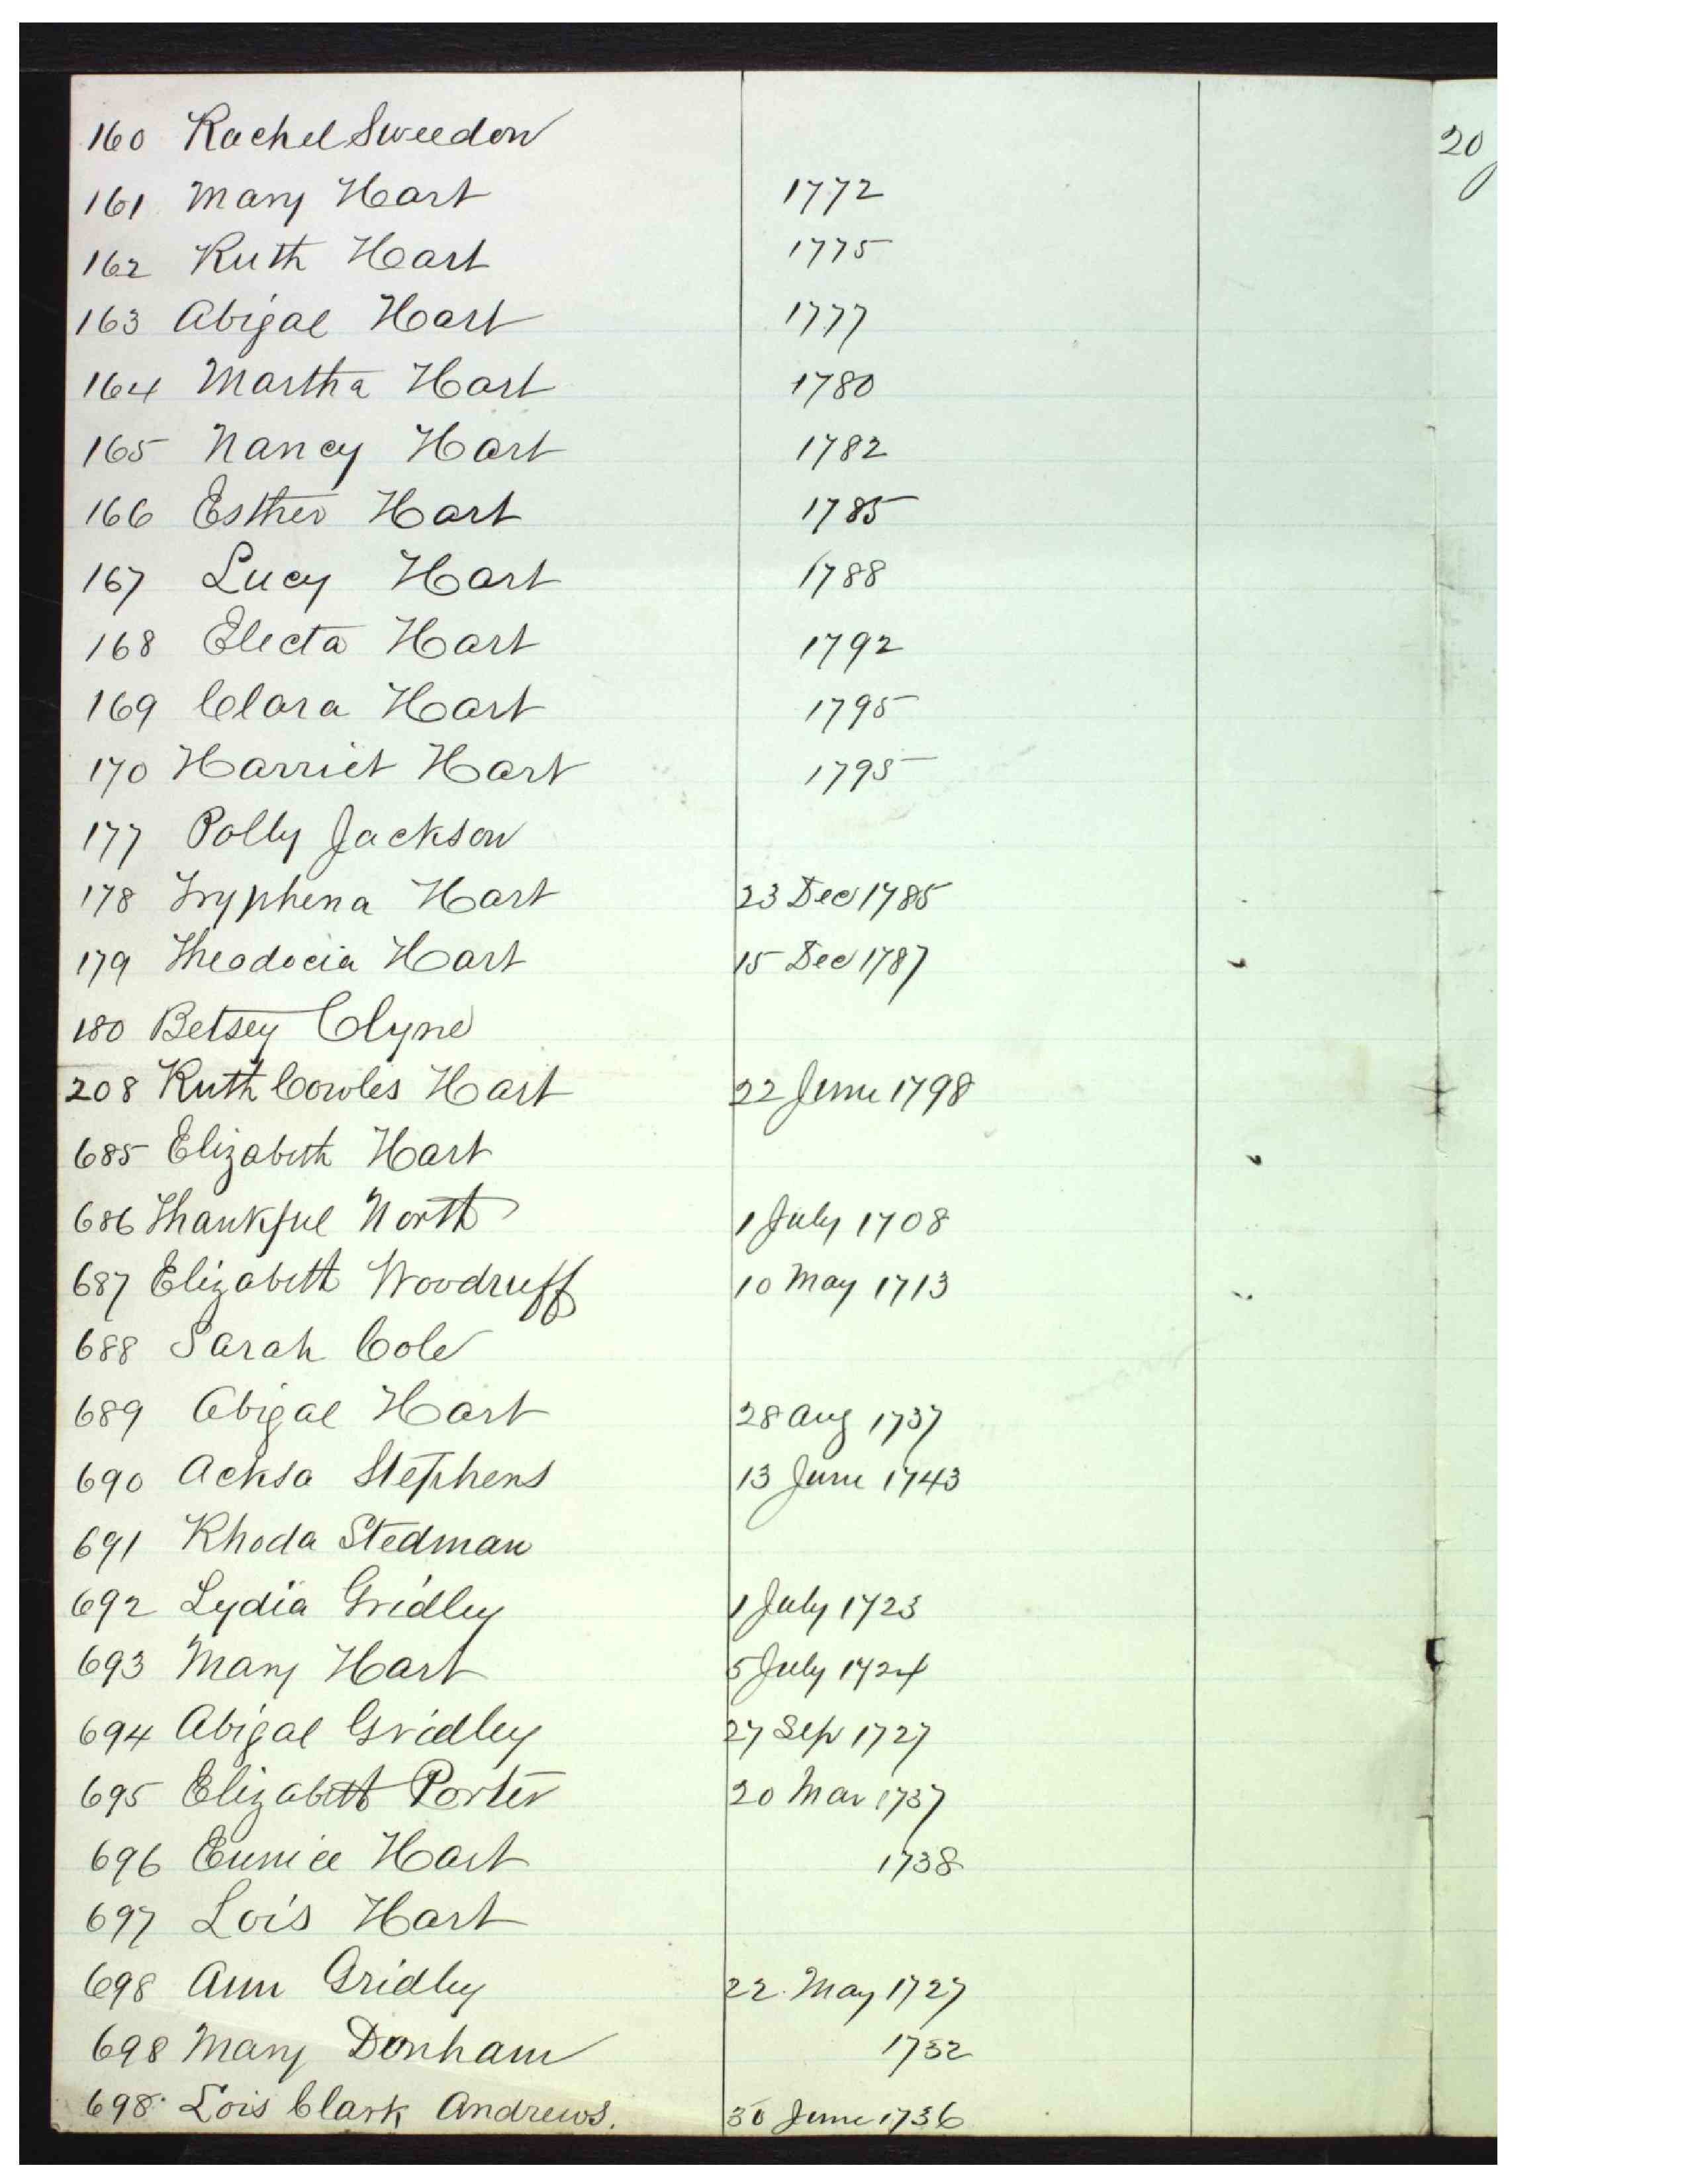 160 Rachel Sweedon
161 Mary Hart 1772
162 Ruth Hart 1775
163 Abigal Hart 1777
164 Martha Hart 1780
165 Nancy Hart 1782
166 Esther Hart 1785
167 Lucy Hart 1788
168 Electa Hart 1792
169 Clara Hart 1795
170 Harriet Hart 1795
177 Polly Jackson
178 Tryphena Hart 23 Dec 1785
179 Theodocia Hart 15 Dec 1787
180 Betsey Clyne
208 Ruth Cowles Hart 22 June 1798
685 Elizabeth Hart
686 Thankful North 1 July 1708
687 Elizabeth Woodruff 10 May 1713
688 Sarah Cole
689 Abigal Hart 28 Aug 1737
690 Acksa Stephens 13 June 1743
691 Rhoda Stedman
692 Lydia Gridley 1 July 1723
693 Mary Hart 5 July 1724
694 Abigal Gridley 27 Sep 1727
695 Elizabeth Porter 20 Mar 1737
696 Eunice Hart 1738
697 Lois Hart
698 Ann Gridley 22 May 1727
698 Mary Donham 1732
698 Lois Clark Andrews. 30 June 1736
20